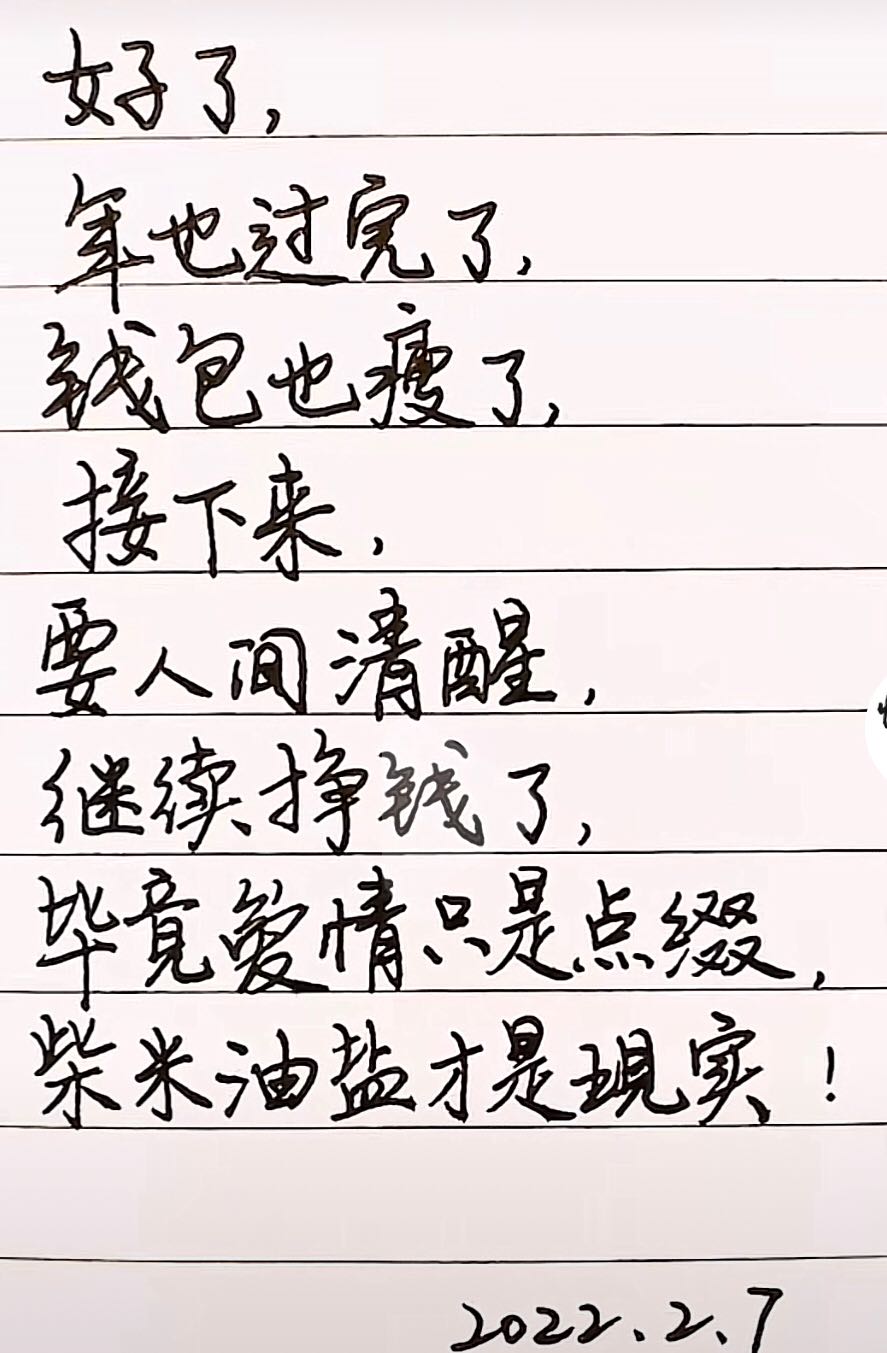 好了，
年也过完了，
钱包也瘦了，
接下来，
要人间清醒，
继续挣钱了，
毕竟爱情只是点缀，
柴米油盐才是现实！
2022.2.7